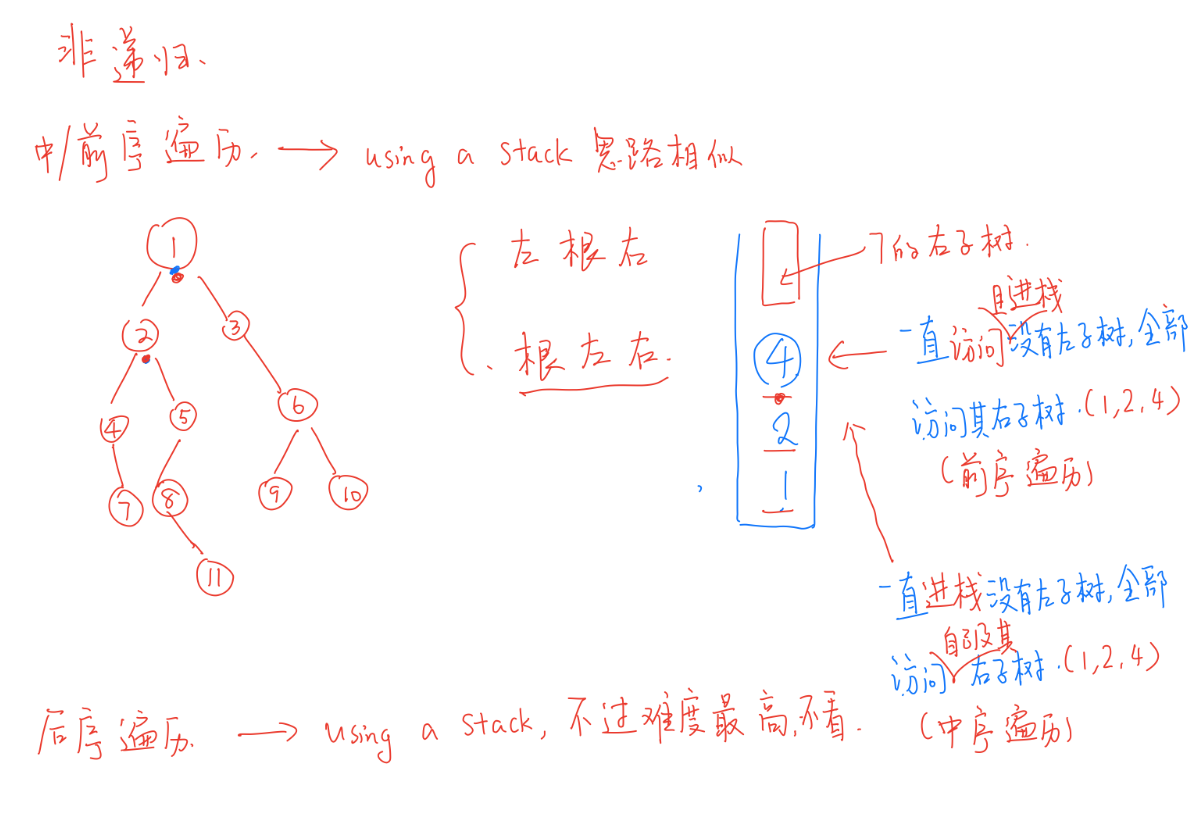 非递归.
中/前序遍历. → using a stack 思路相似
左根右
根左右.
1
2
3
4
5
6
7
8
9
10
11
④
2
1
7的右子树.
且进栈
一直访问没有左子树,全部
访问其右子树.(1,2,4)
(前序遍历)
一直进栈没有左子树,全部
自己及其
访问 右子树.(1,2,4)
(中序遍历)
后序遍历. → using a stack, 不过难度最高,不看.